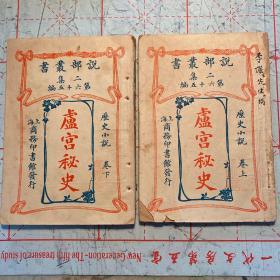 說部叢書
二集
第六十五編
歷史小說 卷上
盧宮秘史
上海商務印書館發行
李
先生捐
說部叢書
二集
第六十五編
歷史小說 卷下
盧宮秘史
上海商務印書館發行
New Generation-The fifth treasure of study
一代文房第五宝